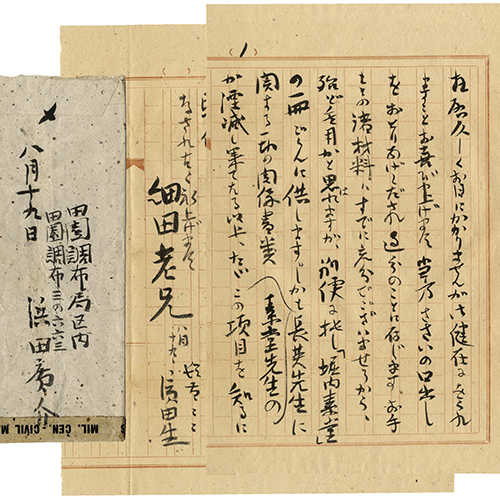 (1)
久しくお目にかかりませんが御健在に
事とお喜び申上げます、当方ささいの口出し
をおとりあげくだされ過分のことに存じます。お手
もとの諸材料にすでに充分でございませうから、
殆ど無用かと思はれますが、別便に托し「堀内素堂」
の一冊ごらんに供します。しかも長英先生に
関する一切の関係書類 素堂先生の
が湮滅し果てたる以上、たゞこの項目を知るに
なされたく 上げます
細田老兄
八月十九日 濱田生
八月十九日
田園調布局区内
田園調布三の六六三
浜田廣介
MIL. CEN.-CIVIL M